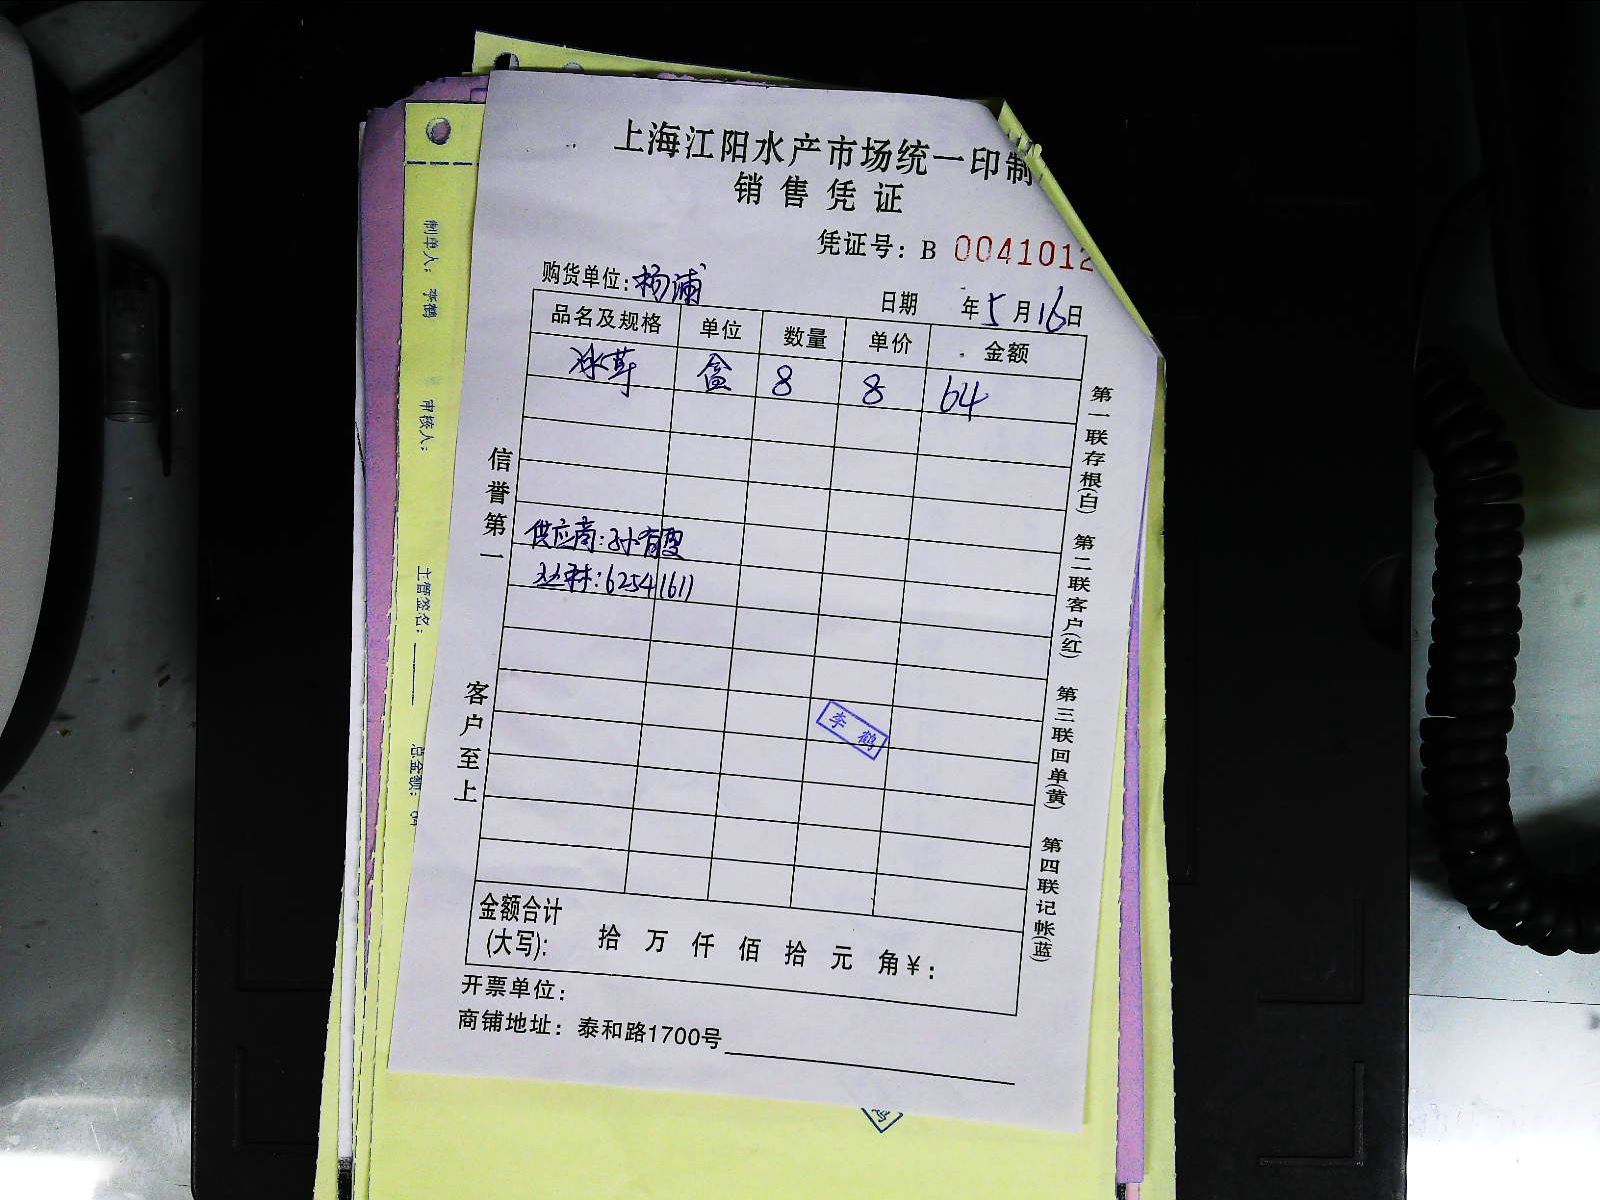 上海江阳水产市场统一印制
销售凭证
凭证号：B 0041012
购货单位：杨浦 日期 年5月16日
品名及规格 单位 数量 单价 金额
冰草 盒 8 8 64
供应商：孙有
：62541611
李鹤
金额合计
(大写)： 拾 万 仟 佰 拾 元 角¥：
开票单位：
商铺地址：泰和路1700号
信誉第一
客户至上
第一联存根(白)
第二联客户(红)
第三联回单(黄)
第四联记帐(蓝)
制单人：李鹤
审核人：
主管签名：
总金额：